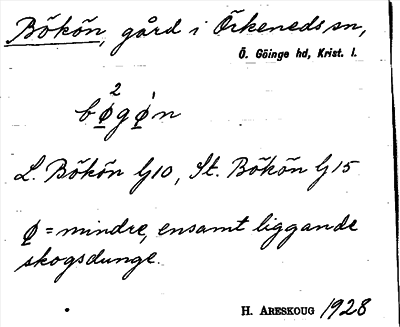 Bökön, gård i Örkeneds sn,
Ö. Göinge hd, Krist. l.
bø̠²gø̠̍n
L. Bökön G10, St. Bökön G15
ø̠ = mindre, ensamt liggande
skogsdunge.
H. ARESKOUG 1928